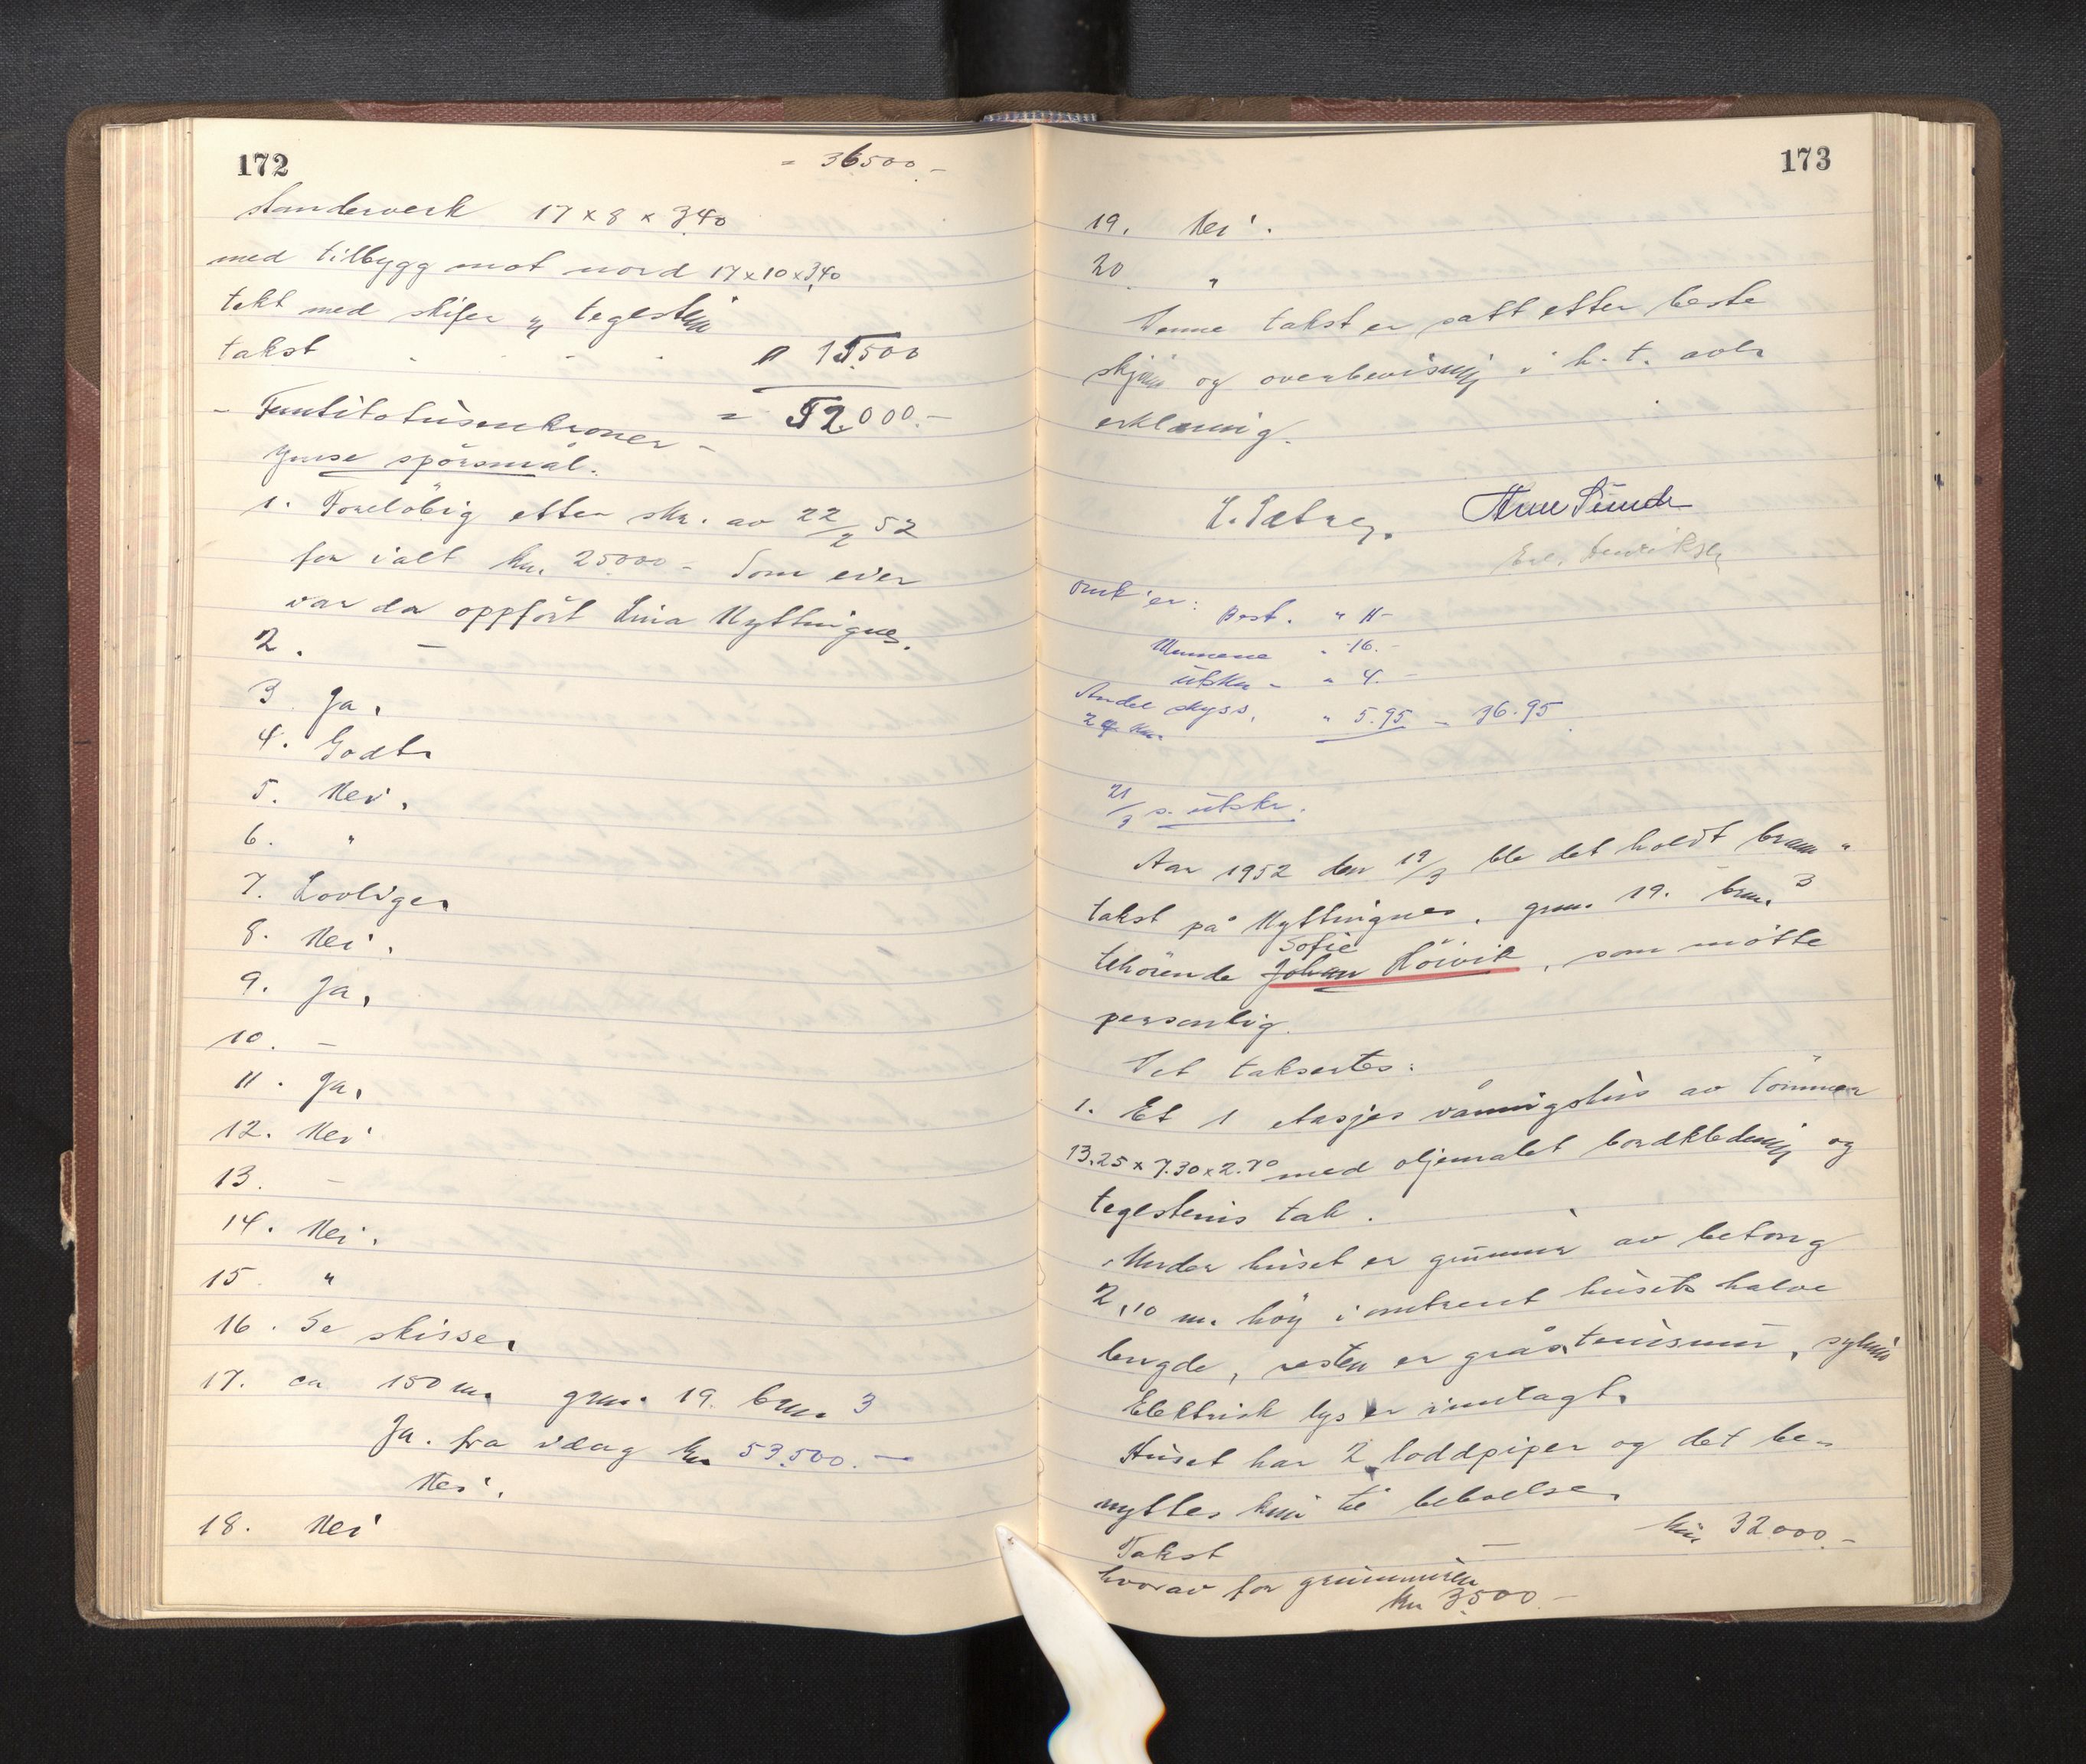 172
= 36500.-
standerverk 17 x 8 x 3.40
med tilbygg mot nord 17x10x3,40
tekt med skifer og teglstein
takst " 15.500
= 52.000.-
- Femtitotusenkroner -
Ymse spörsmål.
1. Foreløbig etter skr. av 22/2 52
for ialt kr. 25000 - Som eier
var da oppført Lina Nyttingnes.
2. -
3 Ja.
4. Godt.
5. Nei.
6. "
7. Lovlige.
8. Nei.
9. Ja.
10. -
11. Ja.
12. Nei
13. -
14. Nei.
15. "
16. Se skisse.
17. ca 150 m. gnr. 19. brnr. 3
Ja. fra idag kr 53.500.-
Nei.
18. Nei
173
19. Nei.
20 "
Denne takst er satt etter beste
skjøn og overbevisning i h. t. avlr
erklæring.
Omk'er:
Best. " 11-
Mennene " 16.-
utskr - " 4.-
Andel skyss. " 5.95 - 36.95
21/3 s. utskr.
Aar 1952 den 19/3 ble det holdt brann "
takst på Nyttingnes, gnr. 19. brnr. 3
Sofie
tilhörende Johan Höivik, som mötte
personlig.
Det taksertes:
1. Et 1 etasjes våningshus av tömmer
13.25 x 7.30 x 2.70 med oljemalet bordkledning og
teglstens tak.
Under huset er grunmur av betong
2,10 m. høy i omtrent husets halve
lengde, resten er gråstensmur,
Elektrisk lys er innlagt.
Huset har 2 loddpiper og det be-
nyttes kun til beboelse.
Takst - kr. 32000.-
hvorav for grunnmuren
kr 3500.-